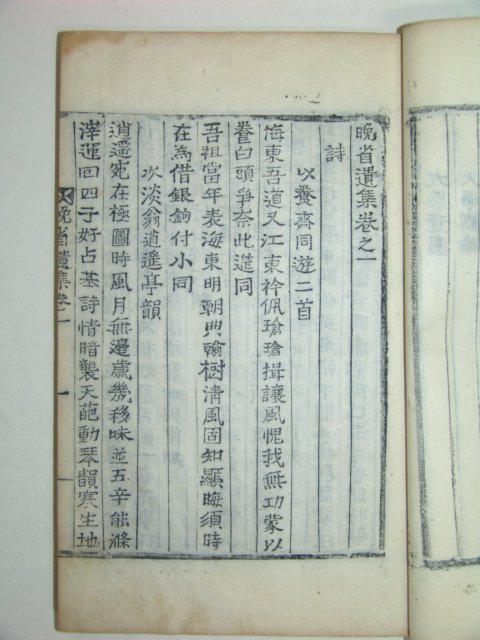 晩省遺集卷之一
詩
以養齋同遊二首
海東吾道又江東衿佩瑲瑲揖讓風愧我無功蒙以
養白頭爭奈此遊同
吾祖當年表海東明朝典翰樹清風固知顯晦須時
在爲借銀鉤付小同
次淡翁逍遥亭韻
逍遥宛在極圖時風月無邊歲幾移味並五辛能滌
滓運回四子好占基詩情暗襲天葩動琴韻寒生地
晩省遺集卷之一 一